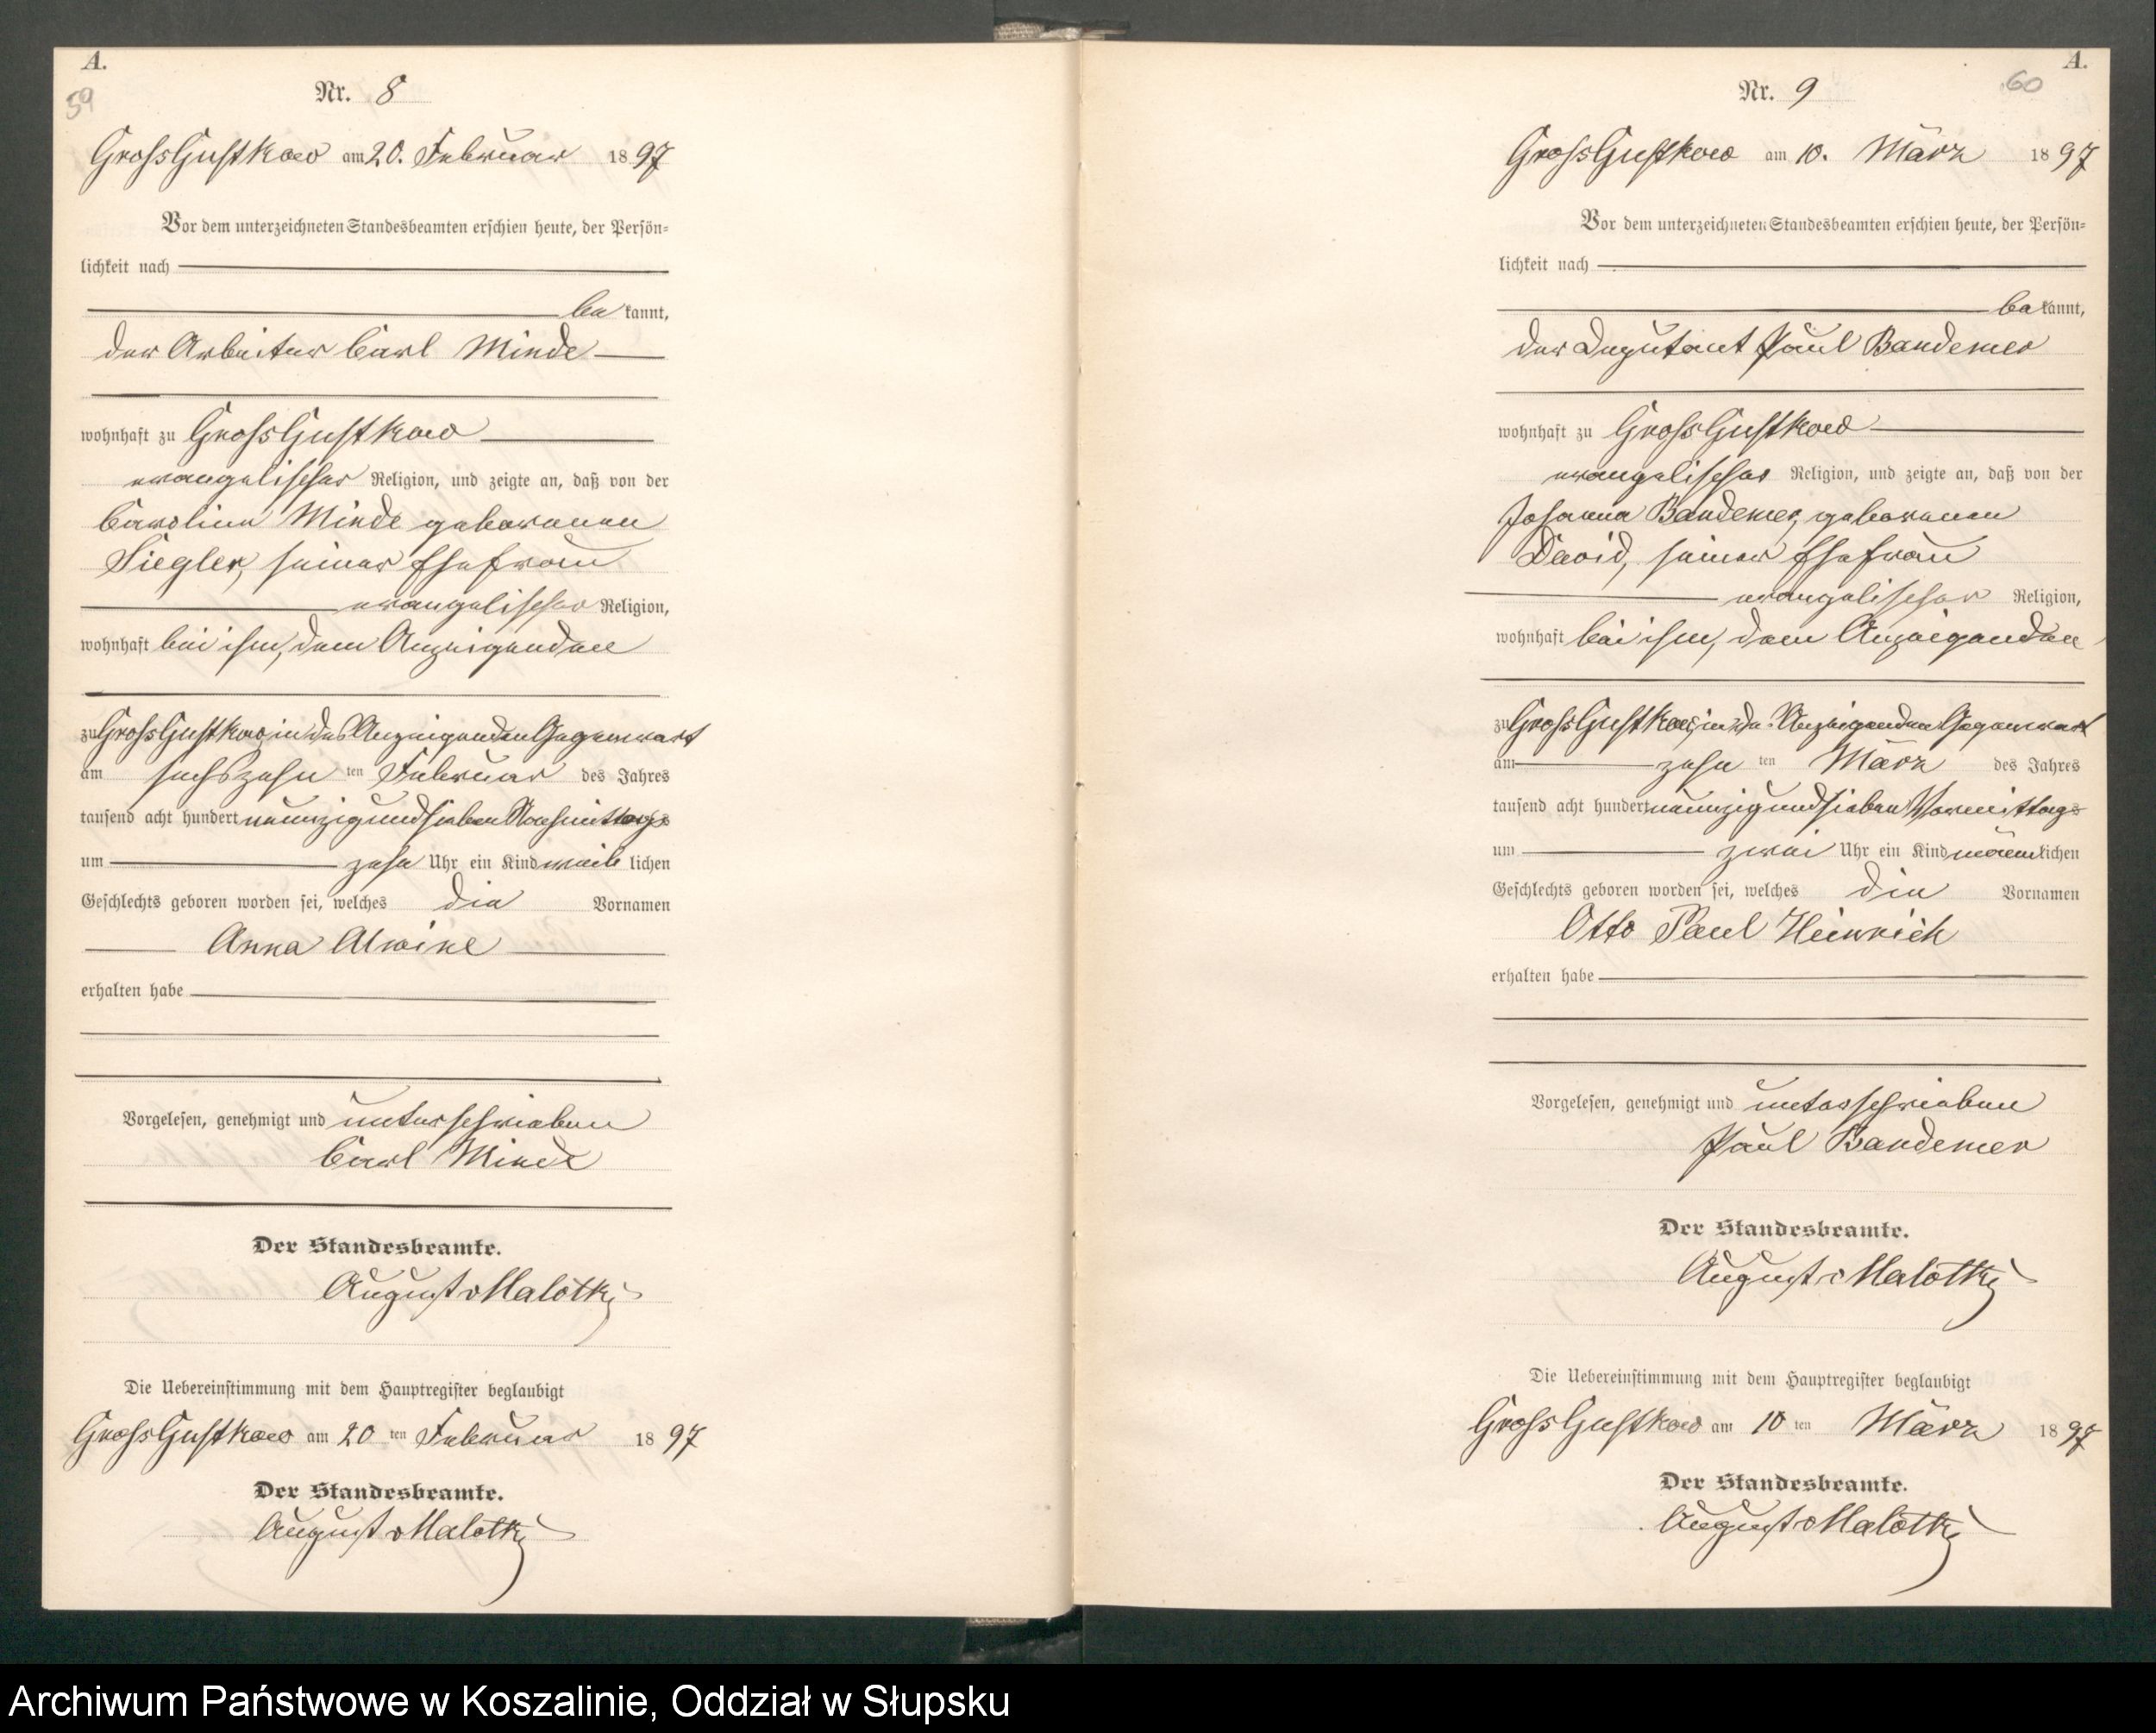 A.
59
Nr. 8
Groß Gustkow am 20. Februar 1897
Vor dem unterzeichneten Standesbeamten erschien heute, der Persön-
lichkeit nach
be kannt,
der Arbeiter Carl Minde
wohnhaft zu Groß Gustkow
evangelischer Religion, und zeigte an, daß von der
Caroline Minde geborenen
Siegler, seiner Ehefrau
evangelischer Religion,
wohnhaft bei ihm, dem Anzeigenden
zu Groß Gustkow, in des Anzeigenden Gegenwart
am sechszehn ten Februar des Jahres
tausend acht hundert neunzig und sieben Nachmittags
um zehn Uhr ein Kind weib lichen
Geschlechts geboren worden sei, welches die Vornamen
Anna Alwine
erhalten habe
Vorgelesen, genehmigt und unterschrieben
Carl Minde
Der Standesbeamte.
August v Malottki
Die Uebereinstimmung mit dem Hauptregister beglaubigt
Groß Gustkow am 20 ten Februar 1897
Der Standesbeamte.
August v Malottki
A.
60
Nr. 9
Groß Gustkow am 10. März 1897
Vor dem unterzeichneten Standesbeamten erschien heute, der Persön-
lichkeit nach
be kannt,
der Deputant Paul Bandemer
wohnhaft zu Groß Gustkow
evangelischer Religion, und zeigte an, daß von der
Johanna Bandemer, geborenen
David, seiner Ehefrau
evangelischer Religion,
wohnhaft bei ihm, dem Anzeigenden
zu Groß Gustkow, in des Anzeigenden Gegenwart
am zehn ten März des Jahres
tausend acht hundert neunzig und sieben Vormittags
um zwei Uhr ein Kind männ lichen
Geschlechts geboren worden sei, welches die Vornamen
Otto Paul Heinrich
erhalten habe
Vorgelesen, genehmigt und unterschrieben
Paul Bandemer
Der Standesbeamte.
August v Malottki
Die Uebereinstimmung mit dem Hauptregister beglaubigt
Groß Gustkow am 10 ten März 1897
Der Standesbeamte.
August v Malottki
Archiwum Państwowe w Koszalinie, Oddział w Słupsku